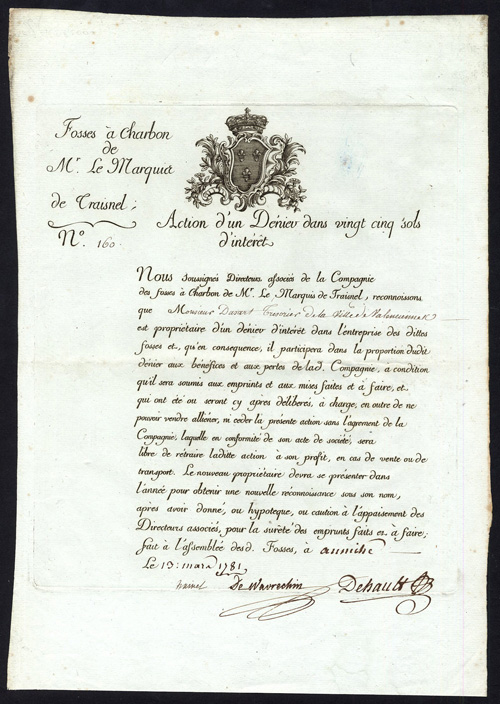 Fosses à Charbon
de
Mr. Le Marquis
de Traisnel;
No. 160.
Action d'un Dénier dans vingt cinq sols
d'intérêt
Nous soussignés Directeurs associés de la Compagnie
des fosses à Charbon de Mr. Le Marquis de Traisnel, reconnoissons
que Monsieur Tresorier de la Ville de Valenciennes
est propriétaire d'un dénier d'intérêt dans l'entreprise des dittes
fosses et, qu'en consequence, il participera dans la proportion dudit
dénier aux bénéfices et aux pertes de lad. Compagnie, a condition
qu'il sera soumis aux emprunts et aux mises faites et à faire, et
qui ont été ou seront cy après déliberés, à charge, en outre de ne
pouvoir vendre alliéner, ni céder la présente action sans l'agrement de la
Compagnie, laquelle en conformité de son acte de societé, sera
libre de rétraire laditte action à son profit, en cas de vente ou de
transport. Le nouveau propriétaire devra se présenter dans
l'année pour obtenir une nouvelle réconnoisance sous son nom,
après avoir donné, ou hypoteque, ou caution à l'appaisement des
Directeurs associés, pour la sûrété des emprunts faits et à faire;
fait à l'assemblée desd. Fosses, à anniche
Le 13: mars 1781,
De Wavrechin Dehault